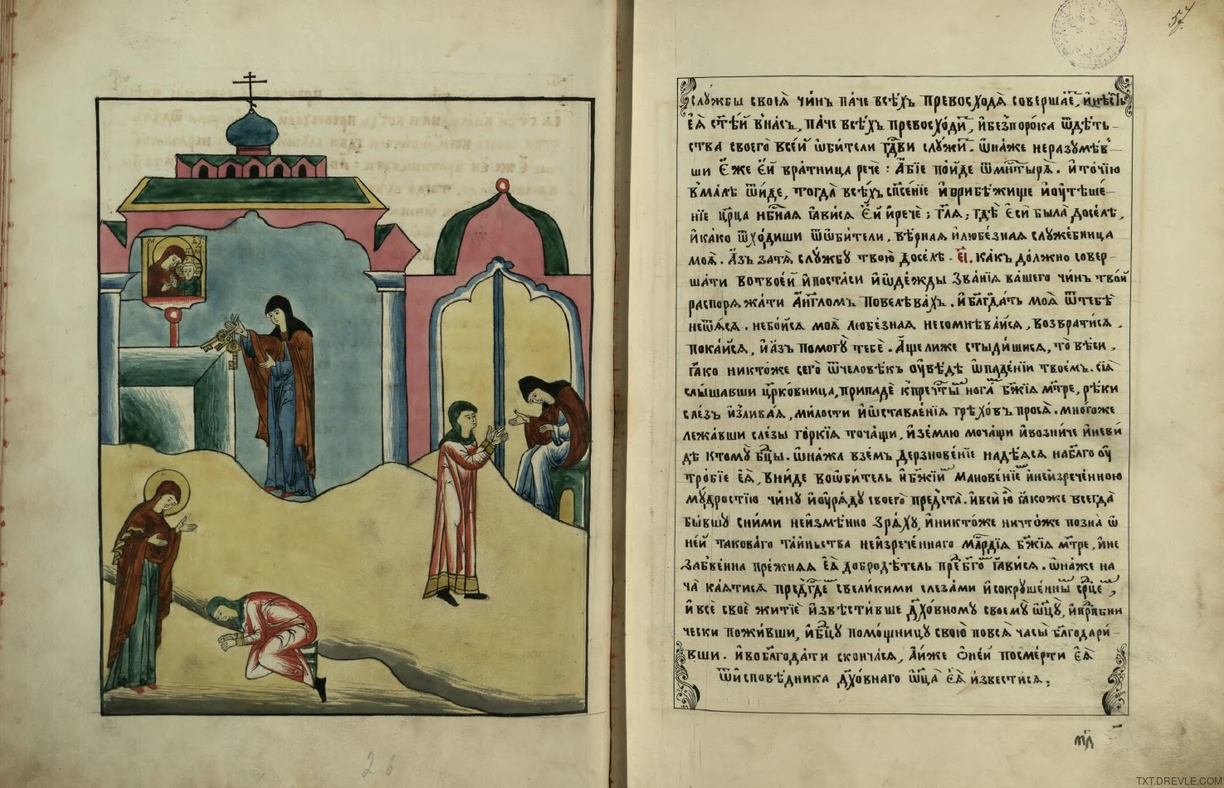 57
слꙋжбы своеѧ̀ чи́нъ па́че всѣ́хъ превосходѧ̀ соверша́е,
еѧ̀ ст҃ѣ́й в̾на́съ, па́че всѣ́хъ превосхо́ди, и҆без̾поро́ка ѿдѣ́тъ-
ства своегѡ̀ всей ѻ҆би́тели гд҃ви слꙋжи̂. ѻ҆на́же неразꙋмѣ́в-
ши є҆́же є҆́й вратница рече̂: а҆́бїе по́йде ѿмн҃тырѧ̀. и҆то́чїю
вма́лѣ ѿи́де, тогда̀ всѣ́хъ сп҃се́нїе и҆прибѣ́жище и҆оу҆тѣше-
нїе цр҃ца нб҃наѧ ꙗ҆ви́сѧ є҆́й и҆рече̂: гл҃ѧ, гдѣ̀ є҆си̂ была̀ досе́лѣ,
и҆ка́ко ѿхо́диши ѿѻ҆би́тели, вѣ́рнаѧ и҆любе́знаѧ слꙋже́бница
моѧ̀. а҆́зъ за тѧ̀ слꙋ́жбꙋ твою̀ досе́лѣ. є҃і. ка́къ до́лжно совер-
шати вотвое́й и҆поста́си и҆ѡ҆де́жды зва́нїѧ ва́шего чи́нъ тво́й
распорѧжа́ти а҆́нг҃ломъ повелѣва́хъ. и҆бл҃гда́ть моѧ̀ ѿтебѐ
неѿѧ́сѧ. небо́йсѧ моѧ̀ любе́знаѧ несомнѣва́йсѧ, возврати́сѧ,
пока́йсѧ, и҆а҆́зъ помогꙋ̀ тебѐ. а҆́ще ли же стыди́шисѧ, то вѣ́си,
ꙗ҆́ко никто́же сегѡ̀ ѿчеловѣ́къ оу҆вѣ́дѣ ѡ҆паде́нїи твое́мъ. сїѧ̀
слы́шавши цр҃ко́вница, припадѐ кпреч҃тыма нога́ма бж҃їѧ мт҃ре, рѣ́ки
сле́зъ и҆злива́ѧ, ми́лости и҆ѡ҆ставле́нїѧ грѣхо́въ просѧ̀. мно́гоже
лежа́вши сле́зы го́ркїѧ точа́щи, и҆зе́млю моча́щи и҆возни́че и҆неви
дѣ ктомꙋ̀ бц҃ы. ѻ҆на́же взе́мъ дерзнове́нїе надѣ́ѧсѧ набл҃гоꙋ
тро́бїе еѧ̀, вни́де воѻ҆би́тель и҆бж҃їимъ манове́нїемъ и҆неизрече́нною
мꙋ́дростїю чи́нꙋ и҆оу҆рѧ́дꙋ своегѡ̀ предста̀. и҆вси̂ ю̀ ꙗ҆́коже всегда̀
бы́вшꙋ сни́ми неизмѣ́нно зрѧ́хꙋ, и҆никто́же ничто́же позна̀ ѡ҆
не́й такова́го та́иньства неизрече́ннаго мл҃рдїѧ бж҃їѧ мт҃ре, и҆не
забве́нна пре́жнѧѧ еѧ̀ добродѣ́тель пред̾бг҃омъ ꙗ҆ви́сѧ. ѻ҆на́же на
ча̀ ка́ѧтисѧ пред̾гд҃емъ свели́кими слеза́ми и҆сокрꙋше́ннымъ срд҃цемъ,
и҆всѐ своѐ житїѐ и҆звѣсти́вше дꙋхо́вномꙋ своемꙋ̀ ѻ҆ц҃ꙋ̀, и҆прпбни
чески пожи́вши, и҆бц҃ꙋ помо́щницꙋ свою̀ повсѧ̂ часы̀ бл҃годари́-
вши. и҆вобл҃года́ти сконча́сѧ, а҆́йже ѻ҆не́й посме́рти еѧ̀
ѿи҆сповѣ́дника дꙋхо́внаго ѻ҆ц҃а̀ еѧ̀ и҆звести́сѧ;
26
TXT.DREVLE.COM